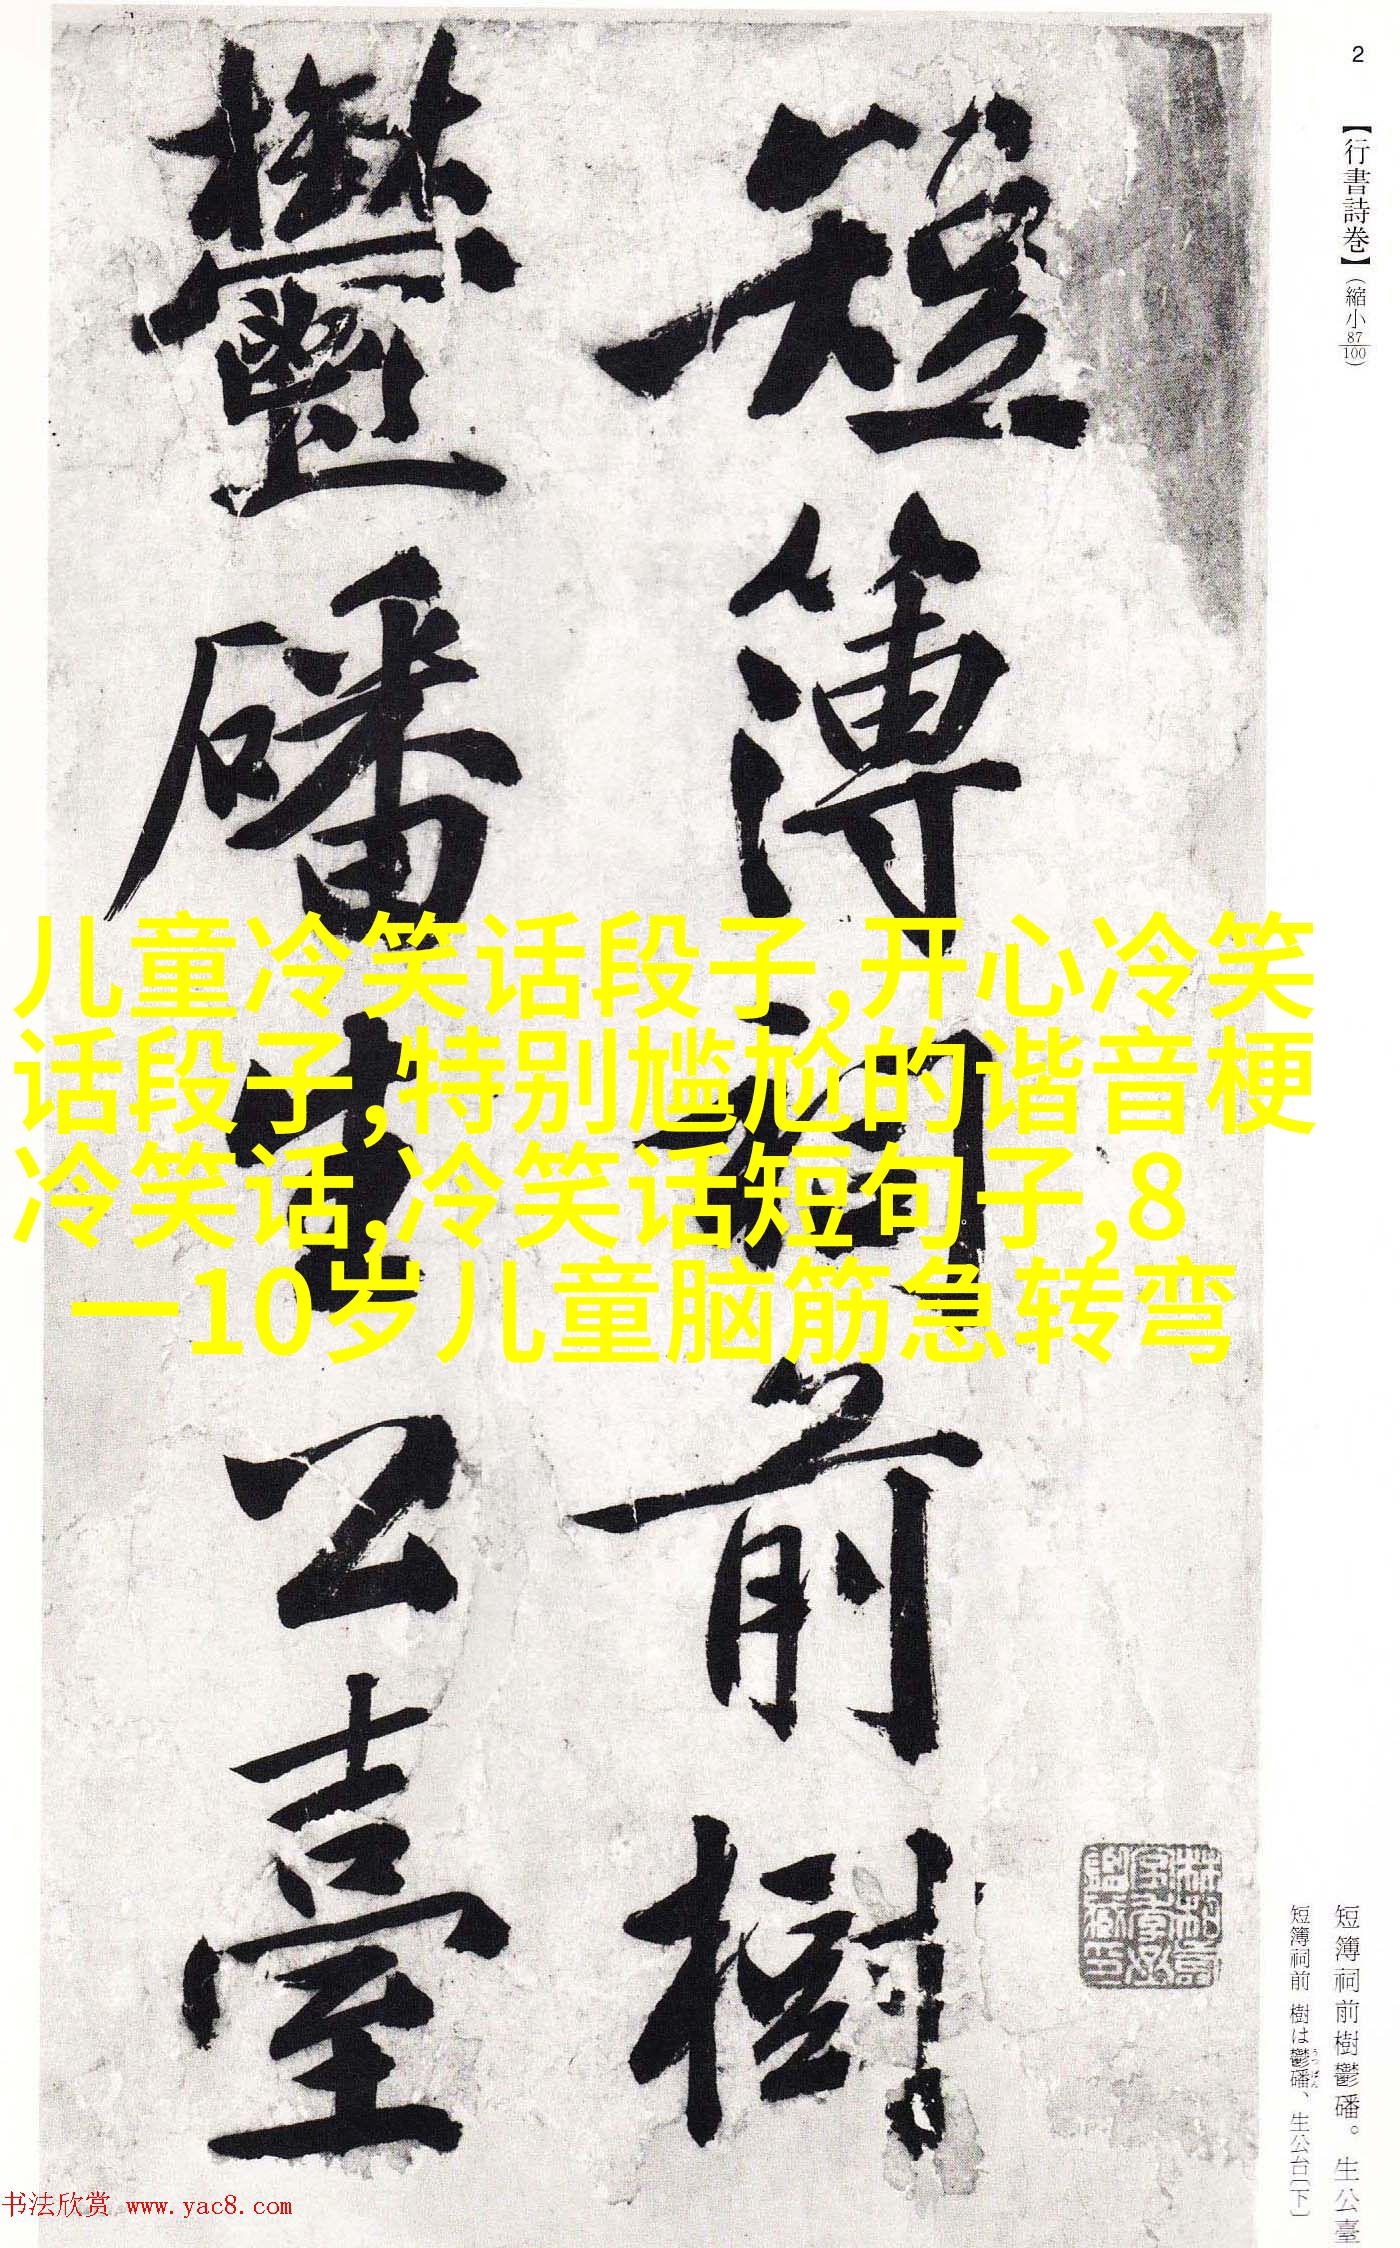 2
【行書詩巻】(縮小87/100)
短簿祠前樹
鬱磻生公臺
儿童冷笑话段子,开心冷笑
话段子,特别尴尬的谐音梗
冷笑话,冷笑话短句子,8
一10岁儿童脑筋急转弯
短簿祠前樹鬱磻。生公臺
短簿祠前 樹は鬱磻、生公台〔下〕
书法欣赏 www.yac8.com